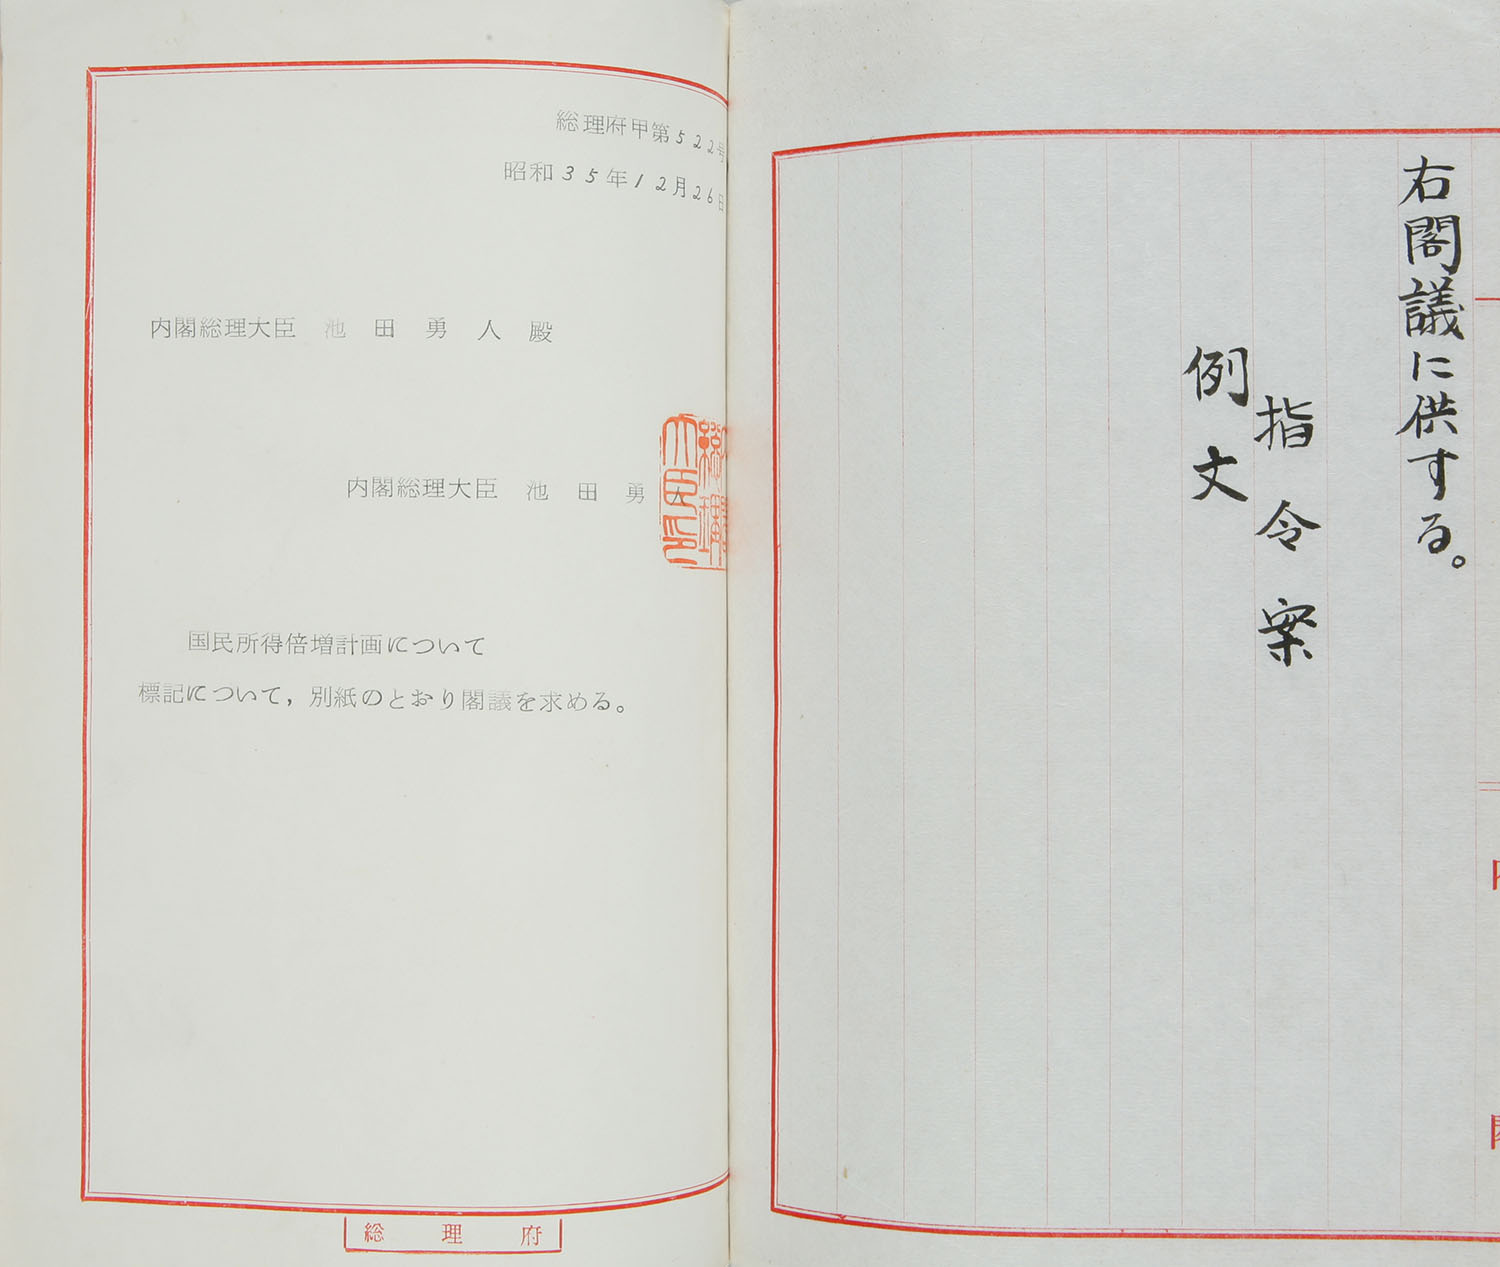 右閣議に供する。
指令案
例文
内
閣
総理府甲第522号
昭和35年12月26日
内閣総理大臣 池田勇人殿
内閣総理大臣 池田勇人
国民所得倍増計画について
標記について，別紙のとおり閣議を求める。
総理府